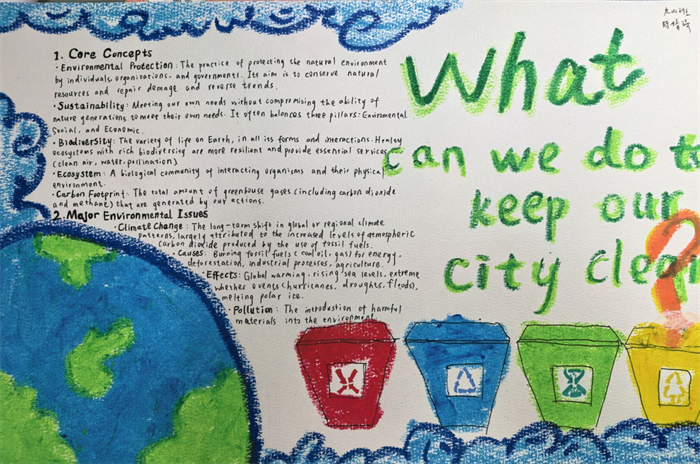 1. Core Concepts
· Environmental Protection: The practice of protecting the natural environment
by individuals, organizations, and governments. Its aim is to conserve natural
resources and repair damage and reverse trends.
· Sustainability: Meeting our own needs without compromising the ability of
nature generations to meet their own needs. It often balances three pillars: Enviromental
Social, and Economic.
· Biodiversity: The variety of life on Earth, in all its forms and interactions. Healthy
ecosystems with rich biodiversity are more resilient and provide essential services
(clean air, water, pollination)
· Ecosystem: A biological community of interacting organisms and their physical
environment.
· Carbon Footprint: The total amount of greenhouse gases (including carbon dioxide
and methane) that are generated by our actions.
2. Major Environmental Issues
· Climate Change: The long-term shift in global or regional climate
patterns, largely attributed to the increased levels of atmospheric
carbon dioxide produced by the use of fossil fuels.
· Causes: Burning fossil fuels (coal, oil, gas) for energy,
deforestation, industrial processes, agriculture.
· Effects: Global warming, rising sea levels, extreme
whether events (hurricanes, droughts, floods),
melting polar ice.
· Pollution: The introduction of harmful
materials into the environment
What
can we do to
keep our
city clean
?